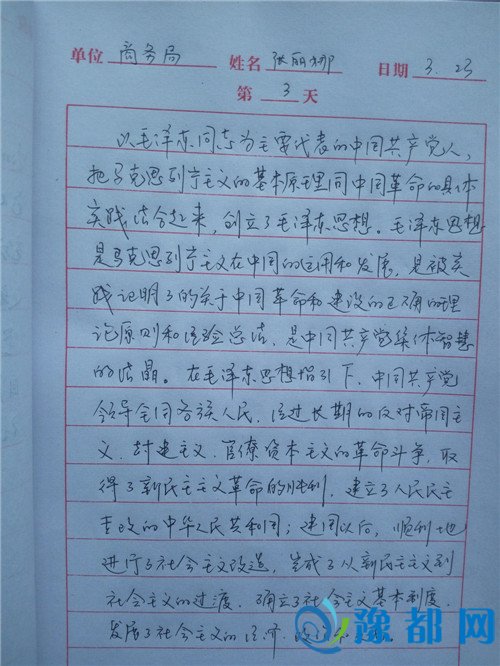 单位 商务局 姓名 张丽娜 日期 3.23
第 3 天
以毛泽东同志为主要代表的中国共产党人,
把马克思列宁主义的基本原理同中国革命的具体
实践结合起来,创立了毛泽东思想。毛泽东思想
是马克思列宁主义在中国的运用和发展,是被实
践证明了的关于中国革命和建设的正确的理
论原则和经验总结,是中国共产党集体智慧
的结晶。在毛泽东思想指引下,中国共产党
领导全国各族人民,经过长期的反对帝国主
义、封建主义、官僚资本主义的革命斗争,取
得了新民主主义革命的胜利,建立了人民民主
专政的中华人民共和国;建国以后,顺利地
进行了社会主义改造,完成了从新民主主义到
社会主义的过渡,确立了社会主义基本制度,
发展了社会主义的经济
豫都网